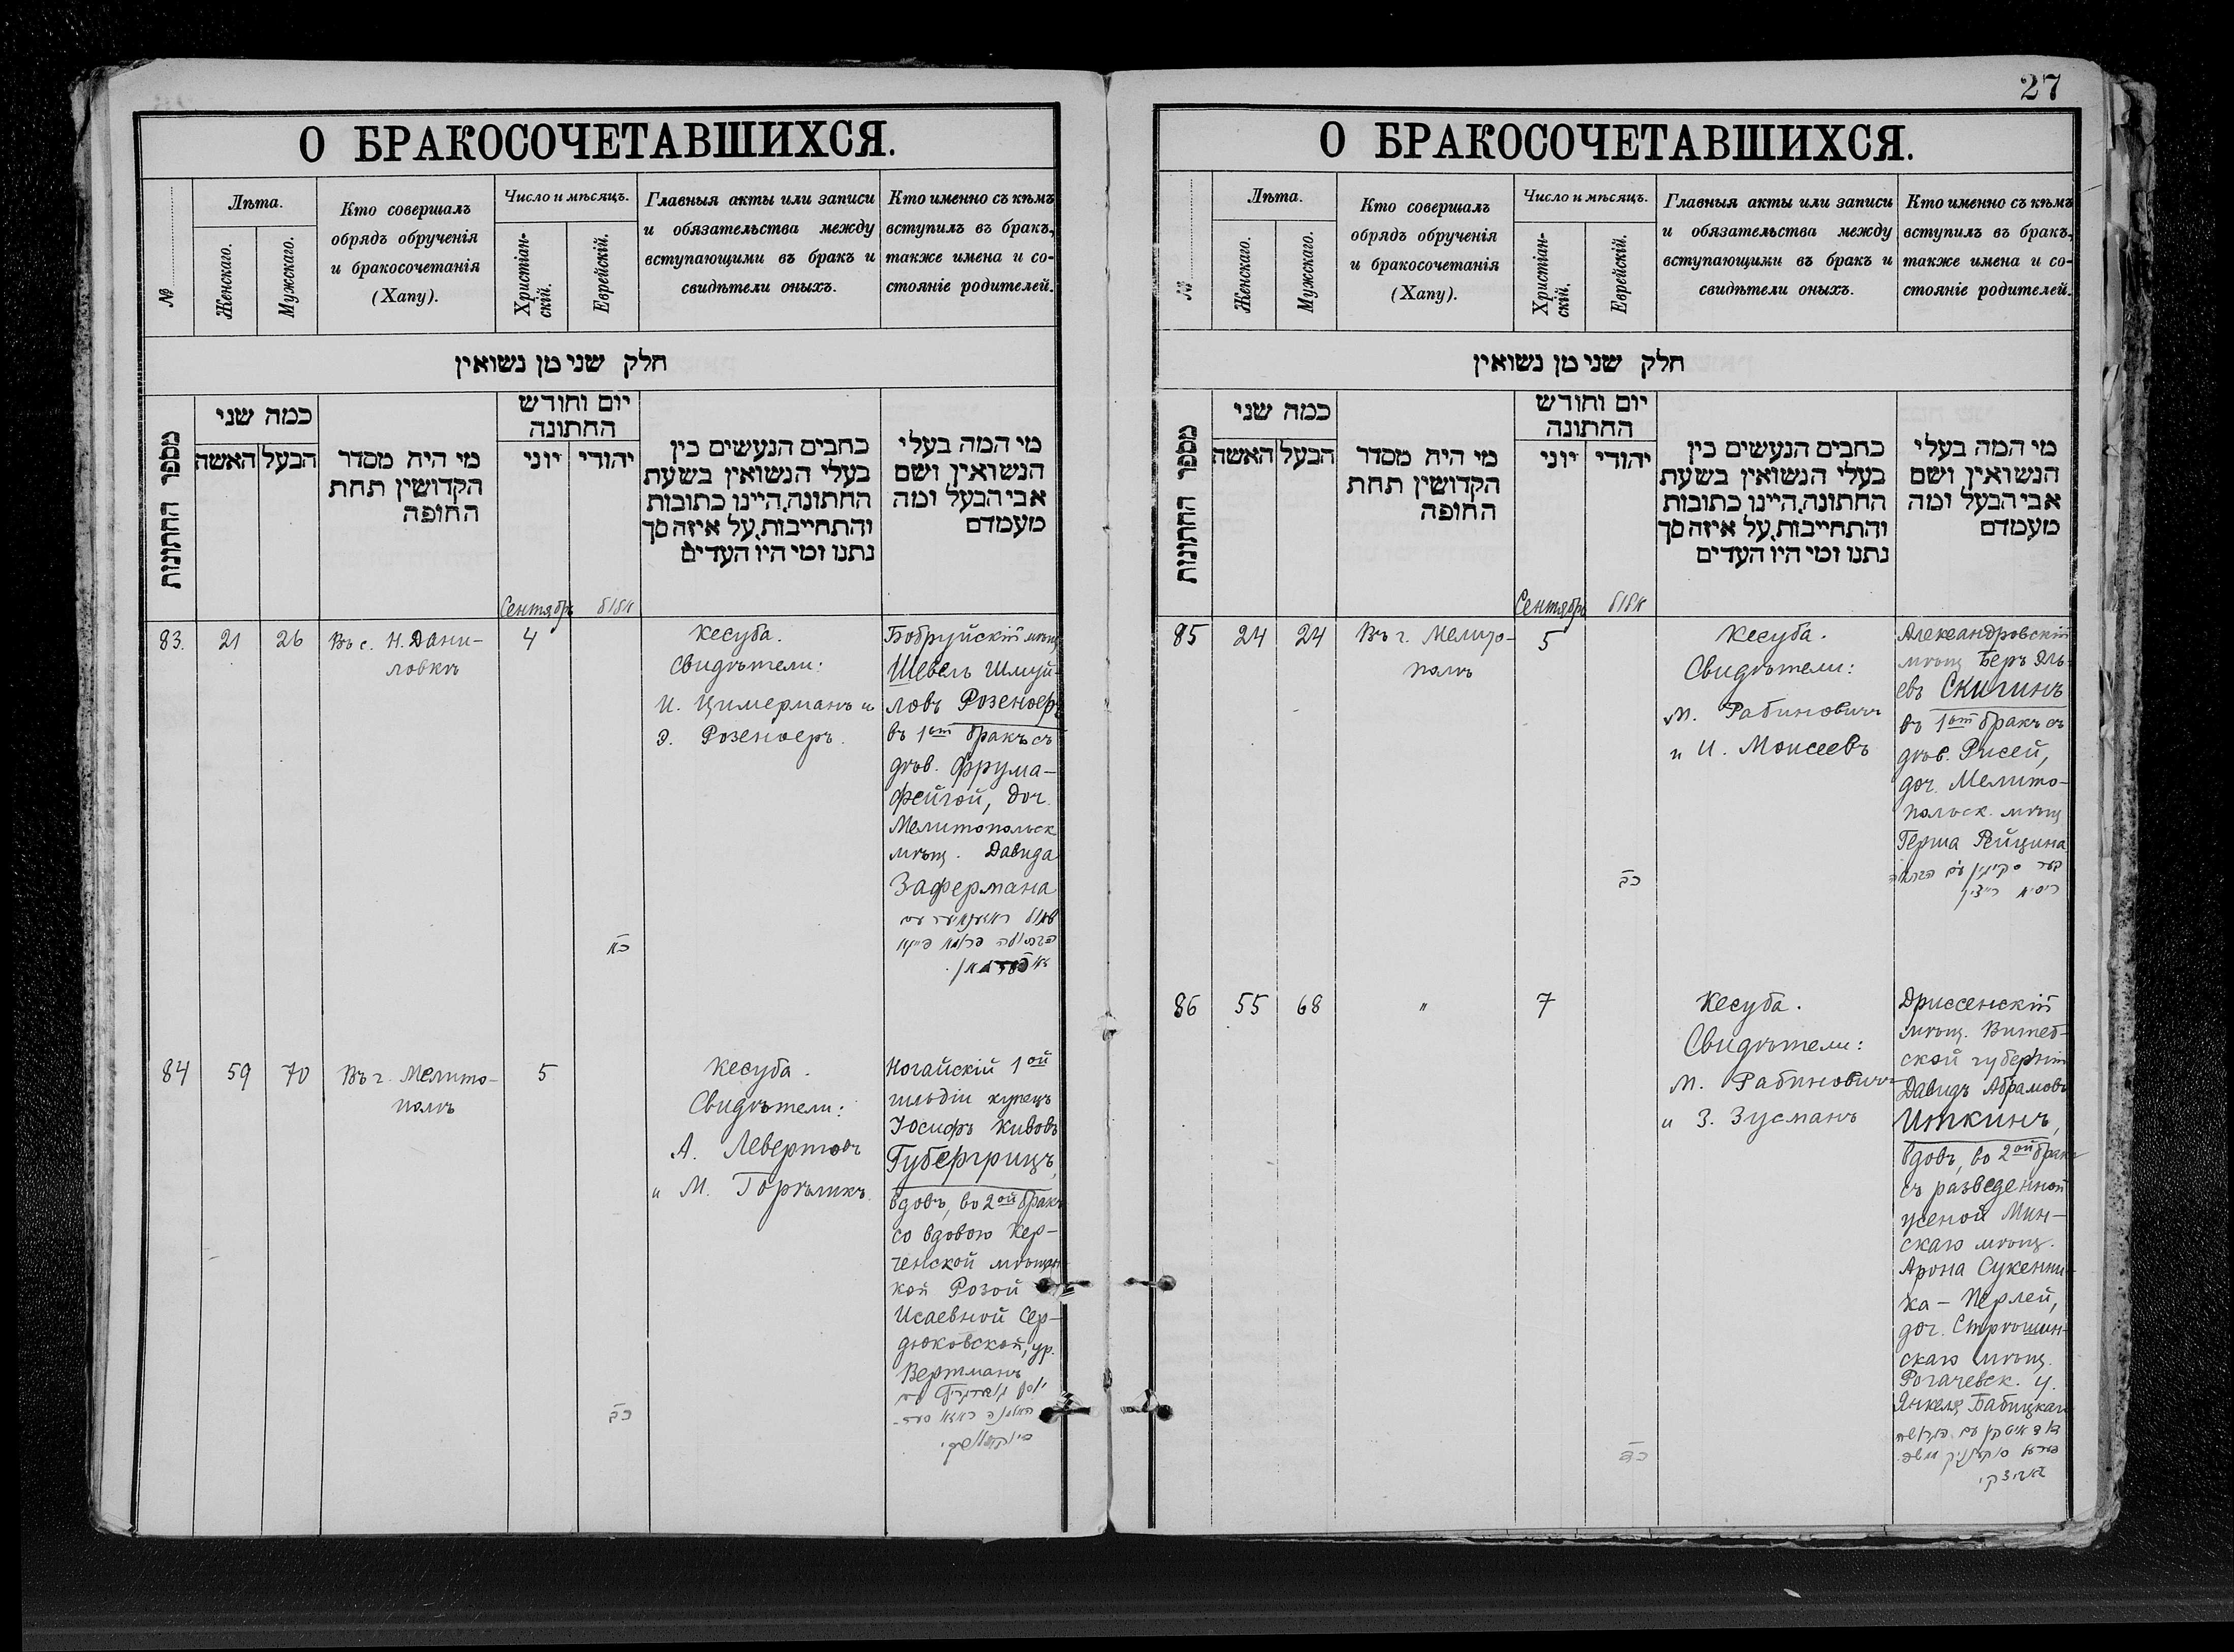 27
О БРАКОСОЧЕТАВШИХСЯ.
№
Лѣта.
Женскаго.
Мужскаго.
Кто совершалъ
обрядъ обрученія
и бракосочетанія
(Хапу).
Число и мѣсяцъ.
Христіан-
скій.
Еврейскій.
Главныя акты или записи
и обязательства между
вступающими въ бракъ и
свидѣтели оныхъ.
Кто именно съ кѣмъ
вступилъ въ бракъ,
также имена и со-
стояніе родителей.
חלק שני מן נשואין
מספר החתונות
כמה שני
האשה
הבעל
מי היה מסדר
הקדושין תחת
החופה
יום וחודש
החתונה
יוני
יהודי
כתבים הנעשים בין
בעלי הנשואין בשעת
החתונה, היינו כתובות
והתחייבות, על איזה סך
נתנו ומי היו העדים
מי המה בעלי
הנשואין ושם
אבי הבעל ומה
מעמדם
Сентябрь
אלול
83.
21
26
Въ с. Н. Дани-
ловкѣ
4
כא
Кесуба.
Свидѣтели:
И. Цимерманъ и
Э. Розеноеръ.
Бобруйскій мѣщ
Шевель Шмуй-
ловъ Розеноеръ
въ 1ый бракъ съ
дѣв. Фрума-
Фейгой, доч.
Мелитопольск
мѣщ. Давида
Зафермана
84
59
70
Въ г. Мелито-
полѣ
5
כב
Кесуба.
Свидѣтели:
А. Левертовъ
и М. Горѣликъ.
Ногайскій 1ой
гильдіи купецъ
Іосифъ Кивовъ
Губергрицъ,
вдовъ, во 2ой бракъ
со вдовою Кер-
ченской мѣщан
кой Розой
Исаевной Сер-
дюковской, ур.
Вертманъ
О БРАКОСОЧЕТАВШИХСЯ.
№
Лѣта.
Женскаго.
Мужскаго.
Кто совершалъ
обрядъ обрученія
и бракосочетанія
(Хапу).
Число и мѣсяцъ.
Христіан-
скій.
Еврейскій.
Главныя акты или записи
и обязательства между
вступающими въ бракъ и
свидѣтели оныхъ.
Кто именно съ кѣмъ
вступилъ въ бракъ,
также имена и со-
стояніе родителей.
חלק שני מן נשואין
מספר החתונות
כמה שני
האשה
הבעל
מי היה מסדר
הקדושין תחת
החופה
יום וחודש
החתונה
יוני
יהודי
כתבים הנעשים בין
בעלי הנשואין בשעת
החתונה, היינו כתובות
והתחייבות, על איזה סך
נתנו ומי היו העדים
מי המה בעלי
הנשואין ושם
אבי הבעל ומה
מעמדם
Сентябрь
אלול
85
24
24
Въ г. Мелито-
полѣ
5
כב
Кесуба.
Свидѣтели:
М. Рабиновичъ
и И. Моисеевъ
Александровскій
мѣщ Беръ Эль-
евъ Скигинъ
въ 1ый бракъ съ
дѣв. Рисей,
доч. Мелито-
польск. мѣщ
Герша Рейцина
86
55
68
"
7
כד
Кесуба.
Свидѣтели:
М. Рабиновичъ
и З. Зусманъ
Дриссенскій
мѣщ. Витеб-
ской губерніи
Давидъ Абрамовъ
Иткинъ,
вдовъ, во 2ой бракъ
съ разведенной
женой Мин-
скаго мѣщ.
Арона Сукенни-
ка - Перлей,
доч. Стрѣшин-
скаго мѣщ.
Рогачевск. у.
Янкеля Бабицкаго